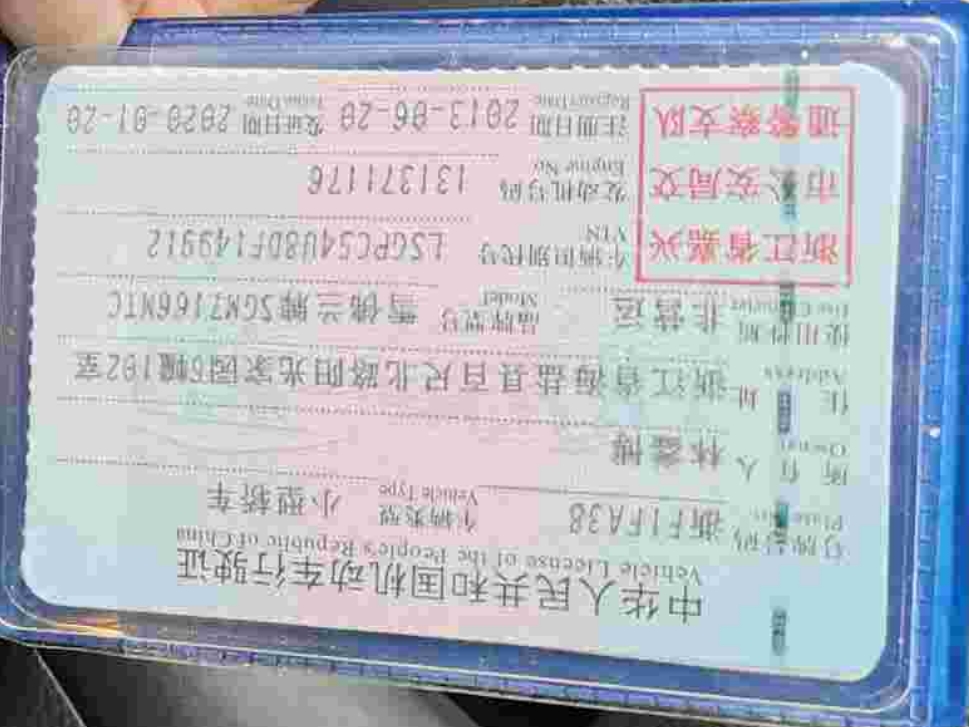 中华人民共和国机动车行驶证
Vehicle License of the People's Republic of China
号牌号码 浙F1FA38 车辆类型 小型轿车
Plate No. Vehicle Type
所有人 林鑫博
Owner
住址 浙江省海盐县百尺北路阳光家园6幢102室
Address
使用性质 非营运 品牌型号 雪佛兰牌SGM7166MTC
Use Character Model
浙江省嘉兴
市公安局交
通警察支队
车辆识别代号 LSGPC54U8DF149912
VIN
发动机号码 131371176
Engine No.
注册日期 2013-06-20 发证日期 2020-01-20
Register Date Issue Date